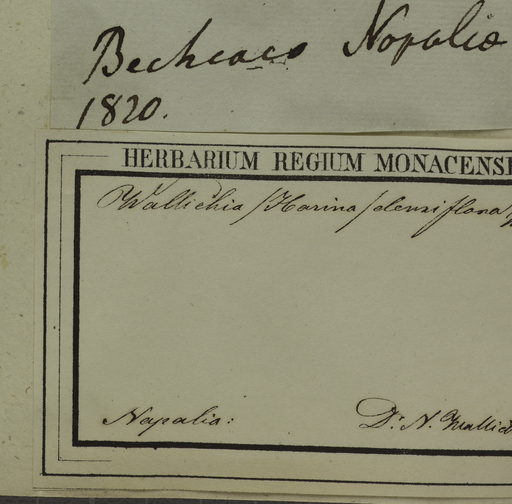 Becheaco Nopaliæ
1820.
HERBARIUM REGIUM MONACENS
Wallichia /Harina/ densiflora
Napalia:
Dr. N. Wallic